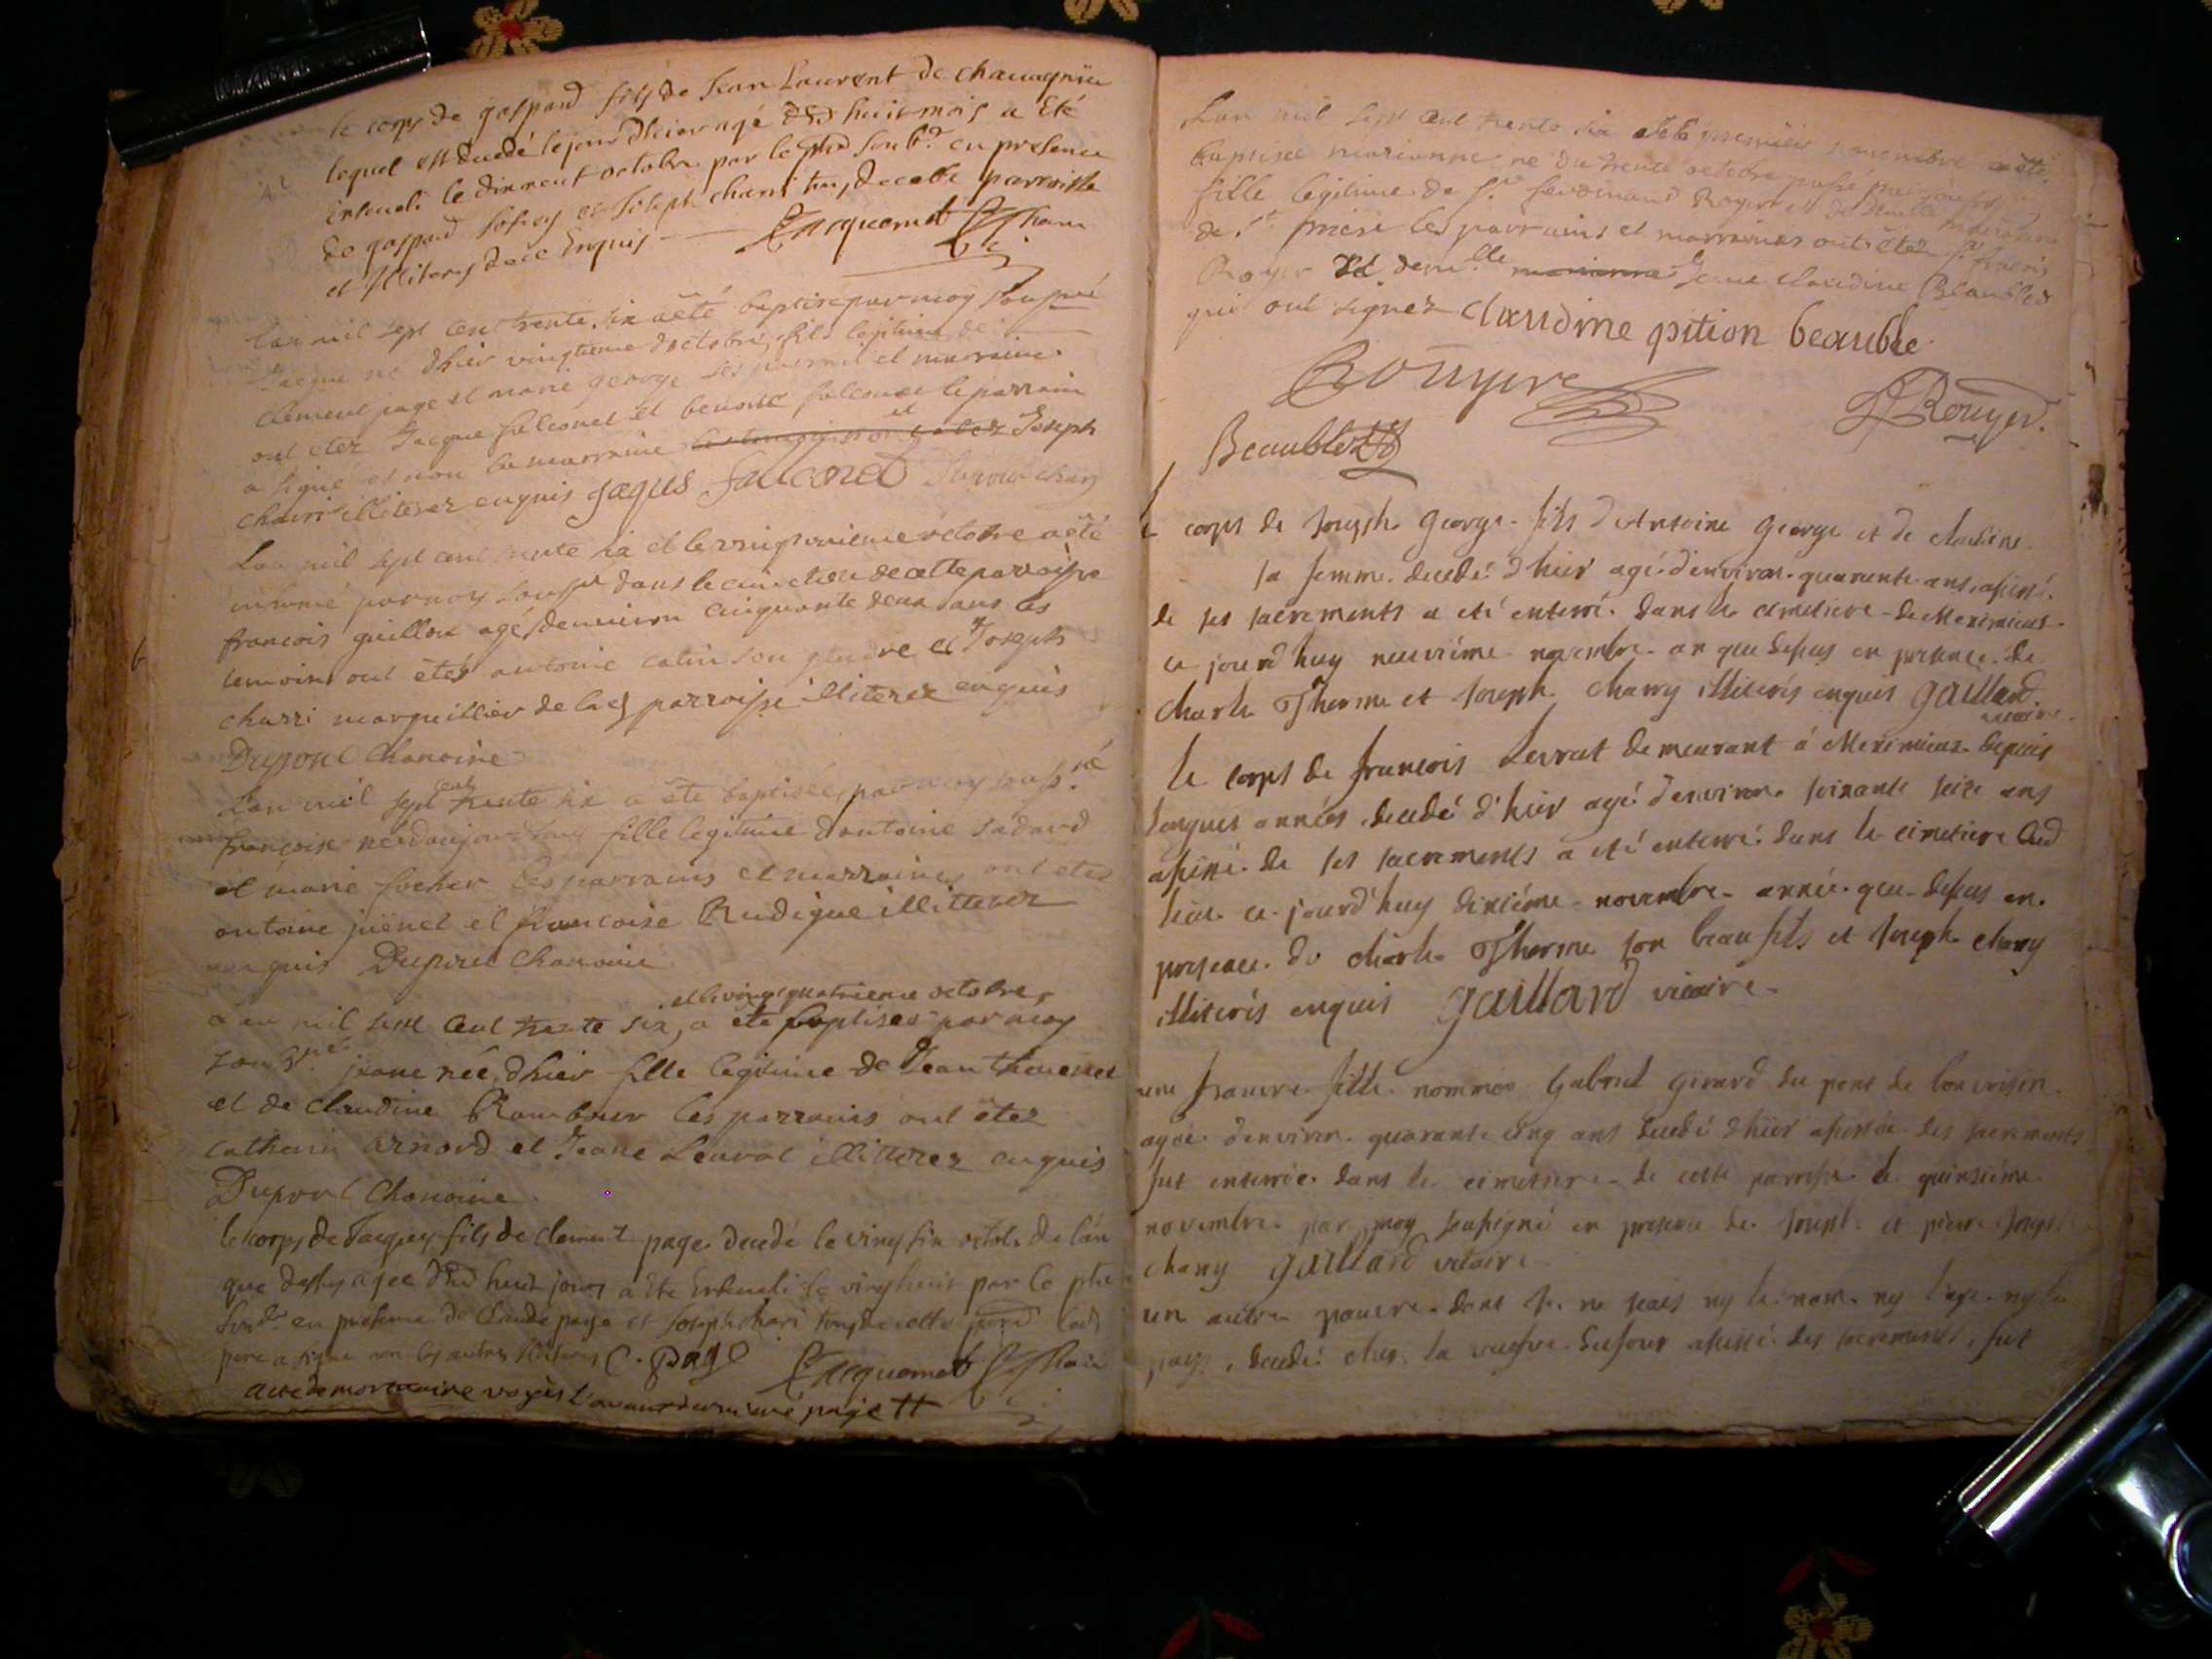 le corps de gaspard fils de Jean Laurent de chauagnieu
lequel est decedé le jour dhier agé dud huit mois a Eté
Enseueli le dixneuf octobre par le ptre soub.né en presence
de gaspard et Joseph charri de cette parroisse
et Illiterez de ce Enquis Jacquemet
Lan mil sept cent trente six a été baptisé par moy soussné
Jacque né dhier vingtieme doctobre, fils legitime de
clement page et marie george les parrain et marraine
ont etez Jacque falconet et benoite falconet le parrain
a signé et non la marraine et Joseph
charri illiterez enquis Jaques falconet Dupont chan
Lan mil sept cent trente six et le vingt octobre a été
inhumé par moy soussné dans le cimetiere de cette paroisse
francois guillou agé denuiron cinquante deux ans les
temoins ont étés antoine catin son gendre et Joseph
charri marguillier de lad parroisse illiterez enquis
Dupont Chanoine
Lan mil sept cent trente six a été baptisée par moy souss.né
francoise née daujourdhuy fille legitime dantoine sadard
et marie les parrains et marraines ont etez
antoine juenet et francoise Rudigue illitterez
enquis Dupont Chanoine
et le vingtquatrieme octobre
Lan mil sept cent trente six, a été baptisée par moy
soubs.né jeane née dhier fille legitime de Jean thevenet
et de claudine Rambour les parrains ont étez
catherin arnord et Jeane Leurat illitterez enquis
Dupont Chanoine
le corps de Jacques fils de clement page decedé le vingt six octob. de lan
que dessus agee dud huit jours a Ete Enseueli le vingt huit par le ptre
soub.né en presence de Claude page et Joseph chari de cette parr
pere a signé non les autres Illiterez C. page Jacquemet
acte de mortuaire voyés l'avantderniere page tt
Lan mil sept cent trente six et le premier novembre a été
baptisée marianne né du trente octobre passé
fille legitime de Sr. ferdinand Royer et de demlle
de St. les parrains et marraines ont étez Sr. francois
Royer et demlle marianne Jeane claudine Beaublez
qui ont signez claudine pition beaublee
Rouyer
Rouyer
Beaublez
le corps de Joseph George fils d'Antoine George et de claudine
sa femme decedé d'hier agé d'environ quarante ans, assisté
de ses sacrements a eté enterré dans le cimetiere de Meximieux
ce jourd'huy neuviéme novembre an que dessus en presence de
charle Therme et Joseph charry illiterés enquis gaillard
vicaire
le corps de francois Levrat demeurant à Meximieux depuis
longues années decedé d'hier agé d'environ soixante seize ans
assisté de ses sacrements a eté enterré dans le cimetiere dud
lieu ce jourd'huy dixiéme novembre année que dessus en
presence de charle Therme son beaufils et Joseph charry
illiterés enquis gaillard vicaire
une pauvre fille nommée Gabriel Girard du pont de bonvoisin
agée d'environ quarante cinq ans decedé d'hier assistée des sacrements
fut enterrée dans le cimetiere de cette paroisse le quinziéme
novembre par moy soussigné en presence de Joseph et pierre Joseph
charry gaillard vicaire
un autre pauvre dont je ne scais ny le nom ny l'age ny le
pays, decedé chez la veufve Dufour assisté des sacrements, fut